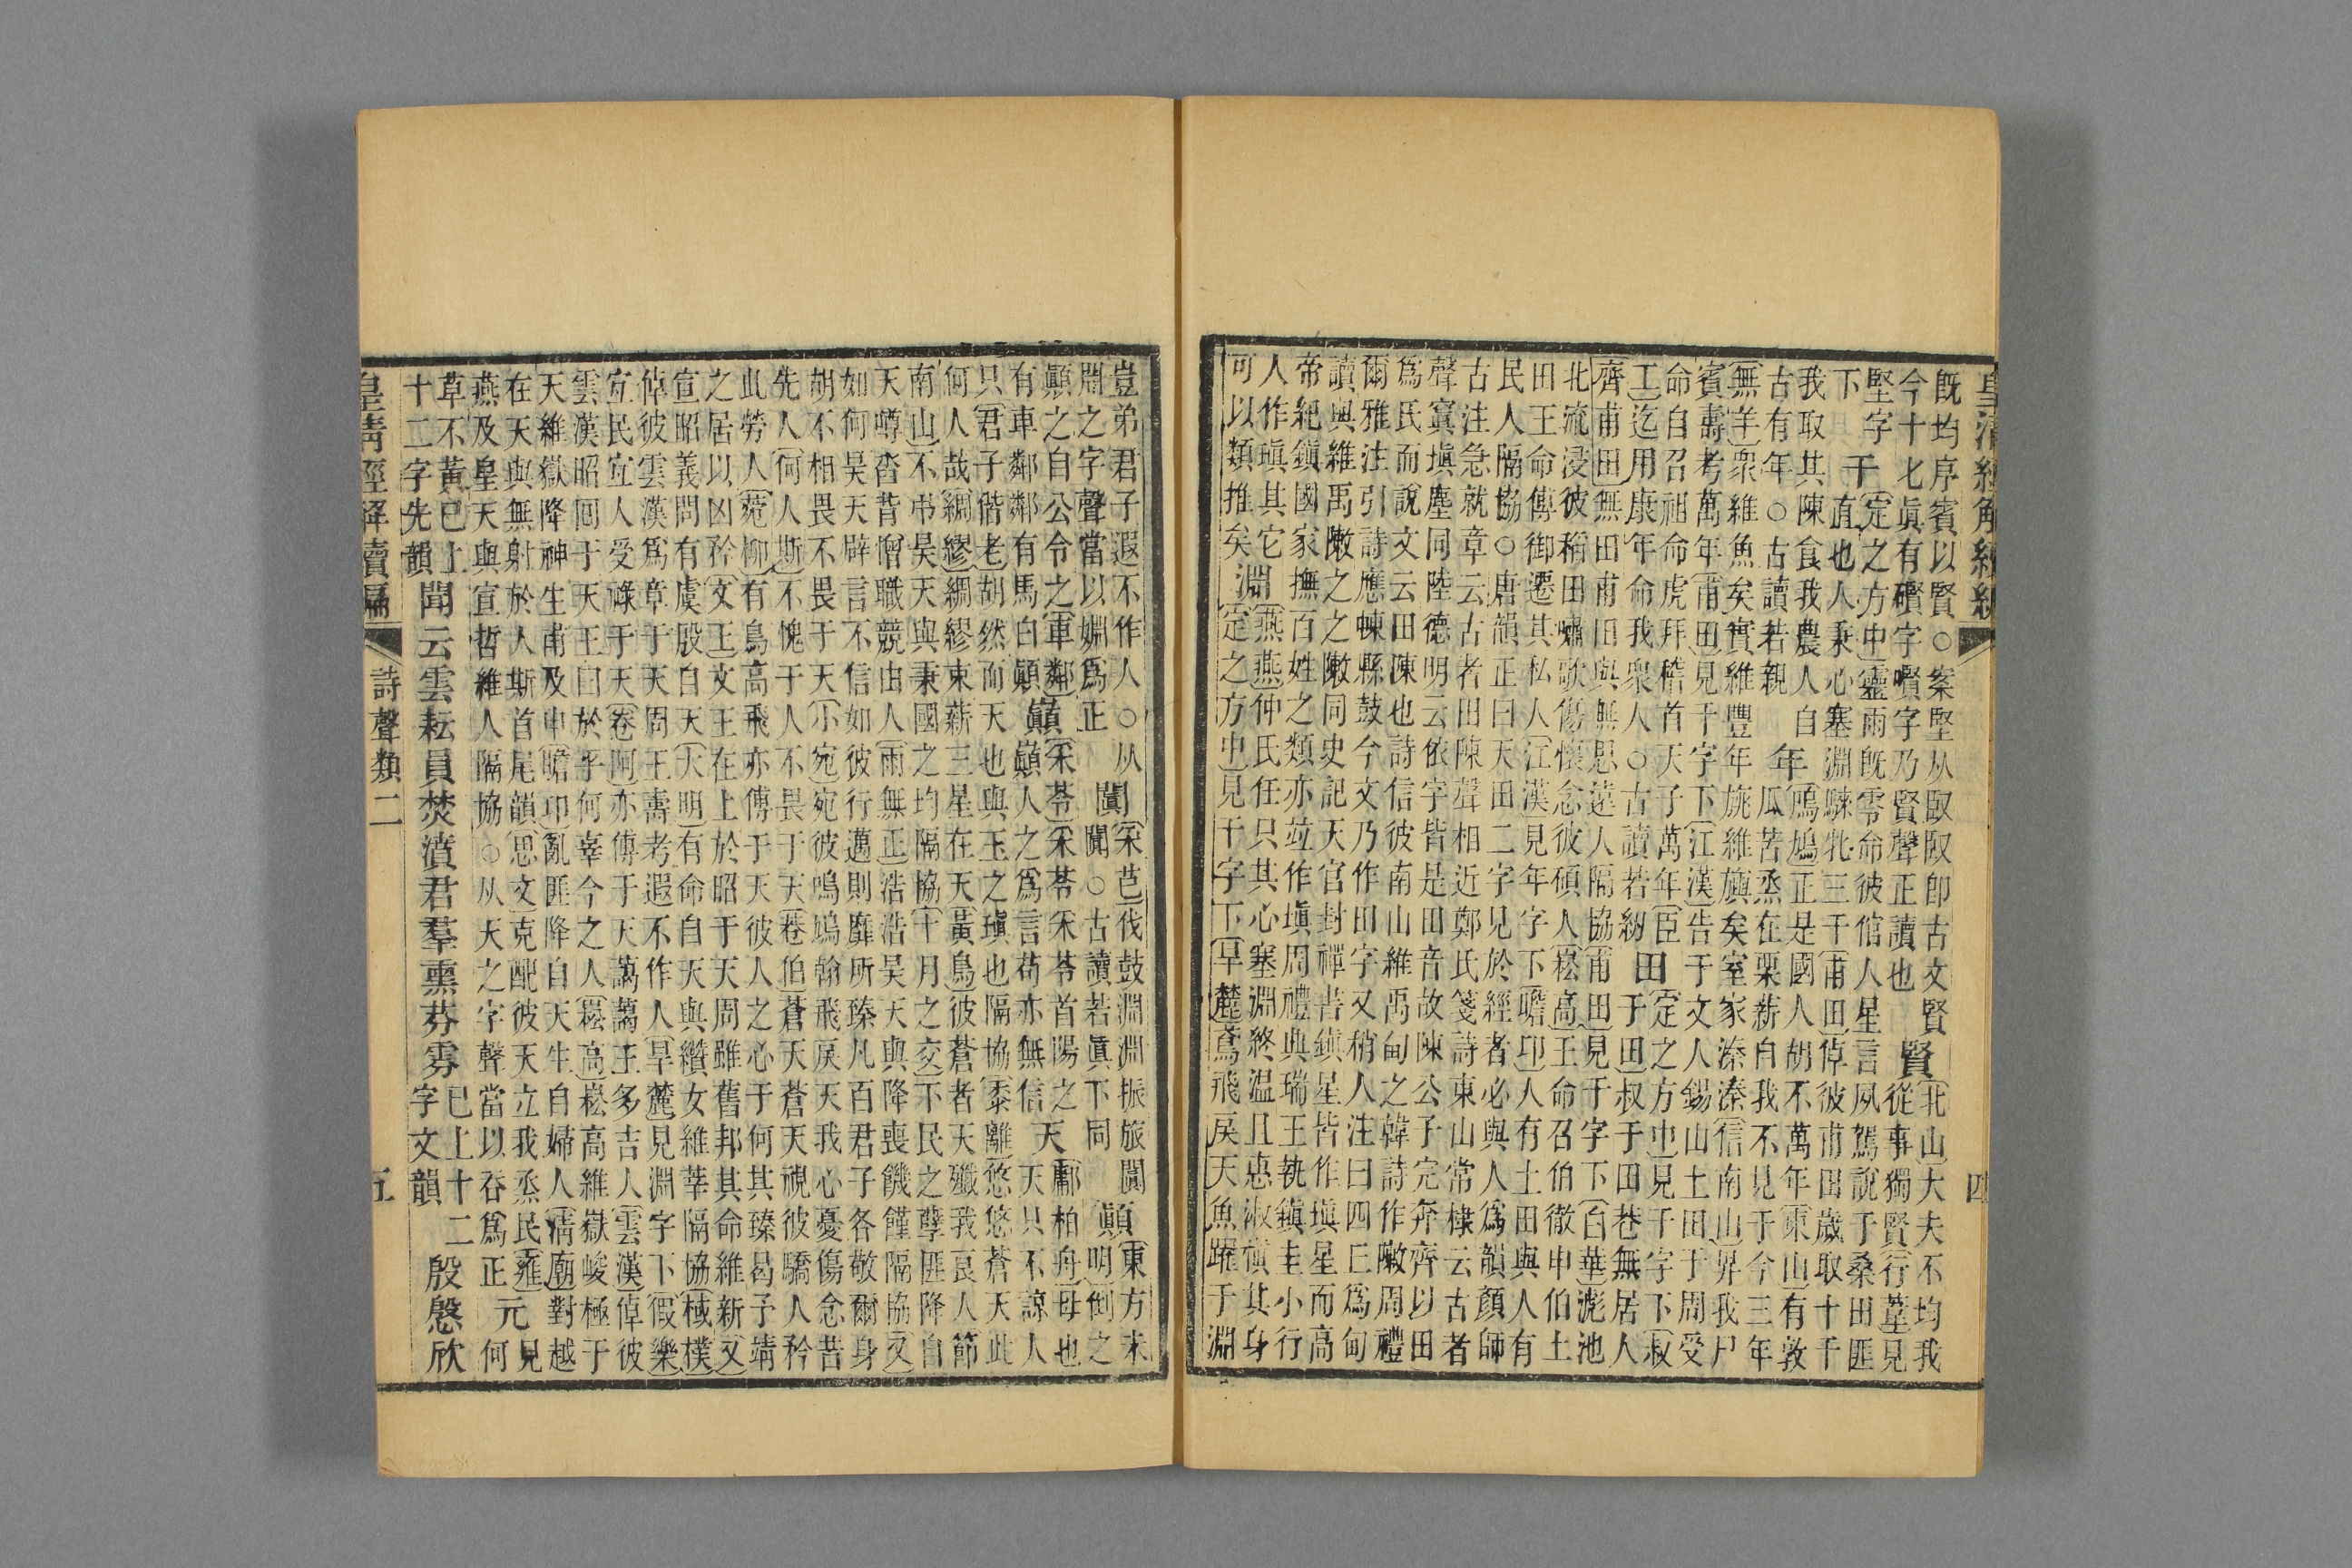 既均序賓以賢○案堅从臤臤即古文賢賢北山大夫不均我
今十七眞有礥字礥字乃賢聲正讀也從事獨賢行葦見
堅字下千定之方中靈雨既零命彼倌人星言夙駕說于桑田匪
直也人秉心塞淵騋牝三千甫田倬彼甫田歲取十千
我取其陳食我農人自年鳲鳩正是國人胡不萬年東山有敦
古有年○古讀若親瓜苦烝在栗薪自我不見于今三年
無羊衆維魚矣實維豐年旐維旟矣室家溱溱信南山畀我尸
賓壽考萬年甫田見千字下江漢告于文人錫山土田于周受
命自召祖命虎拜稽首天子萬年臣田定之方中見千字下叔
工迄用康年命我衆人○古讀若紉于田叔于田巷無居人
齊甫田無田甫田與無思遠人隔協甫田見千字下白華滮池
北流浸彼稻田嘯歌傷懷念彼碩人崧高王命召伯徹申伯土
田王命傅御遷其私人江漢見年字下瞻卬人有土田與人有
民人隔協○唐韻正曰天田二字見於經者必與人爲韻顏師
古注急就章云古者田陳聲相近鄭氏箋詩東山常棣云古者
聲寘塡塵同陸德明云依字皆是田音故陳公子完奔齊以田
爲氏而說文云田陳也詩信彼南山維禹甸之韓詩作敶周禮
爾雅注引詩應朄縣鼓今文乃作田字又稍人注曰四丘爲甸
讀與維禹敶之之敶同史記天官封禪書鎮星皆作塡星而高
帝紀鎭國家撫百姓之類亦竝作塡周禮典瑞王執鎭圭小行
人作瑱其它淵燕燕仲氏任只其心塞淵終温且惠淑愼其身
可以類推矣定之方中見千字下旱麓鳶飛戾天魚躍于淵
皇清經解續編
四
豈弟君子遐不作人○从闐采芑伐鼓淵淵振旅闐顚東方未
淵之字聲當以淵爲正闐○古讀若眞下同明倒之
顚之自公令之車鄰巔采苓采苓采苓首陽之天鄘柏舟母也
有車鄰鄰有馬白顚巓人之爲言苟亦無信天只不諒人
只君子偕老胡然而天也與玉之瑱也隔協黍離悠悠蒼天此
何人哉綢繆綢繆東薪三星在天黃鳥彼蒼者天殲我良人節
南山不弔昊天與秉國之均隔協十月之交下民之孽匪降自
天噂沓背憎職競由人雨無正浩浩昊天與降喪饑饉隔協又
如何昊天辟言不信如彼行邁則靡所臻凡百君子各敬爾身
胡不相畏不畏于天小宛宛彼鳴鳩翰飛戾天我心憂傷念昔
先人何人斯不愧于人不畏于天巷伯蒼天蒼天視彼驕人矜
此勞人菀柳有鳥高飛亦傅于天彼人之心于何其臻曷予靖
之居以凶矜文王文王在上於昭于天周雖舊邦其命維新又
宣昭義問有虞殷自天大明有命自天與纘女維莘隔協棫樸
倬彼雲漢爲章于天周王壽考遐不作人旱麓見淵字下假樂
宜民宜人受祿于天卷阿亦傅于天藹藹王多吉人雲漢倬彼
雲漢昭回于天王曰於乎何辜今之人崧高崧高維嶽峻極于
天維嶽降神生甫及申瞻卬亂匪降自天生自婦人清廟對越
在天與無射於人斯首尾韻思文克配彼天立我烝民雝
燕及皇天與宣哲維人隔協○从天之字聲當以吞爲正元見何
草不黃已上聞云雲耘員焚濆君羣熏芬雰已上十二殷慇欣
十二字先韻字文韻
皇清經解續編
詩聲類二
五